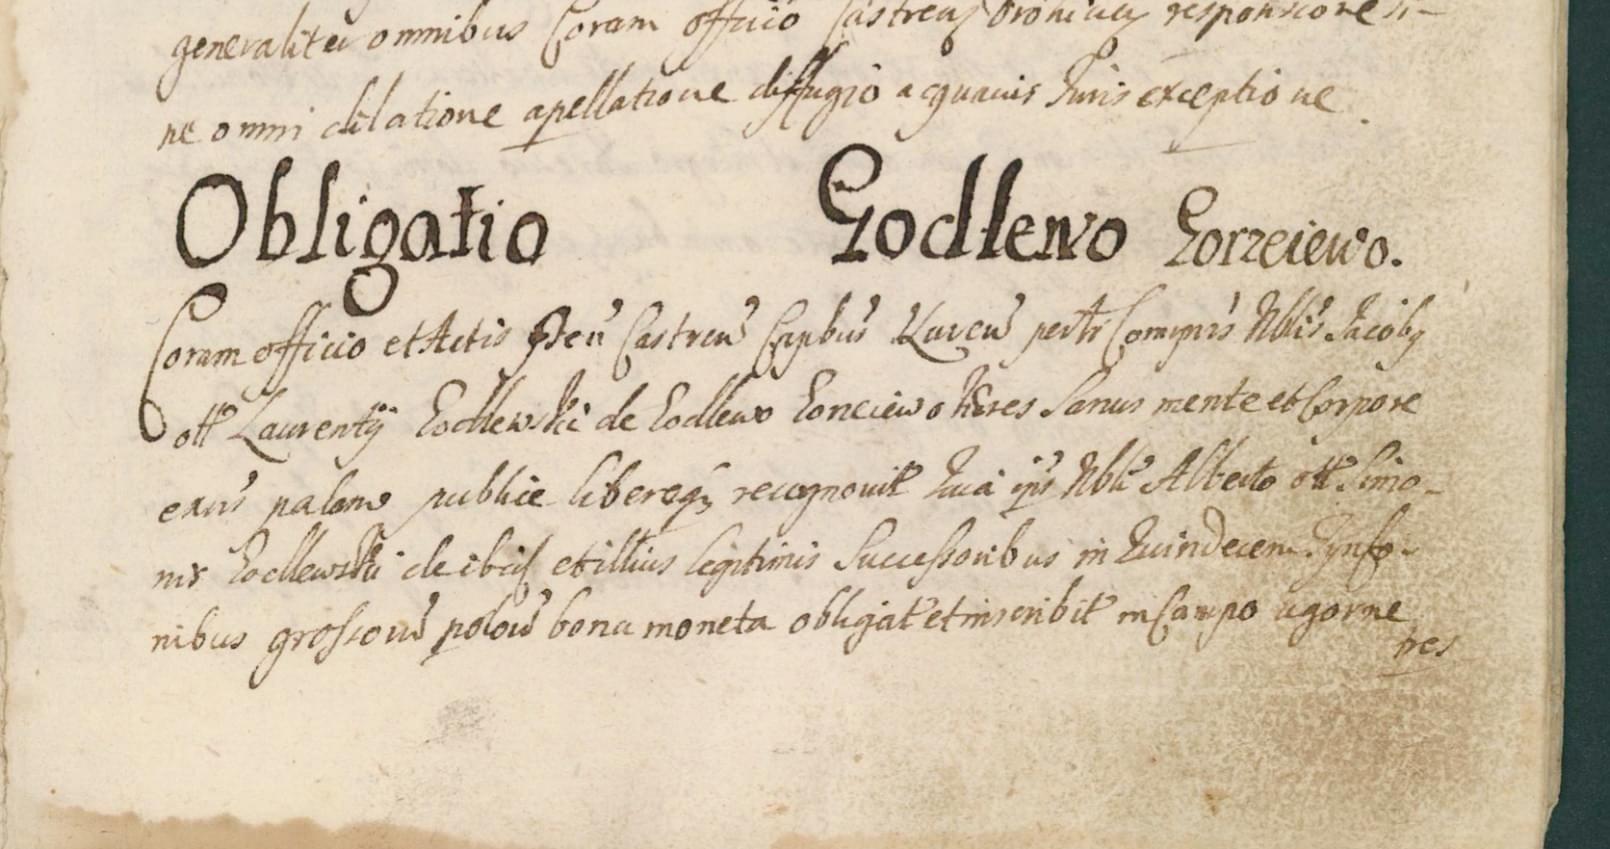 generaliter omnibus Coram officio Castren responsione si-
ne omni dilatione apellatione diffugio acquavis Iuris exceptione.
Obligatio Godlewo Gorzeiewo.
Coram officio et Actis Castren Comparens Nblis Jacobus
olim Laurentij Godlewski de Godlewo Heres Sanus mente et Corpore
palam publice libereq recognovit Quia Nbli Alberto olim Simo-
nis Godlewski de ibid et illius legitimis Successoribus in Quindecem
nibus bona moneta obligat et inscribit in Campo agorne
tres